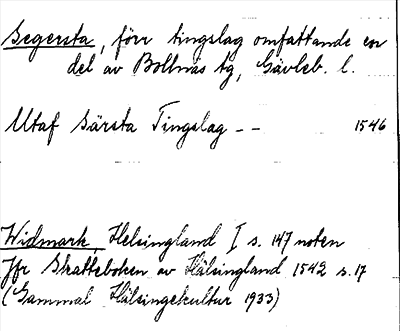 Segersta, förr tingslag omfattande en
del av Bollnäs tg, Gävleb. l.
Utaf Särsta Tingslag - - 1546
Widmark, Helsingland I s. 147 noten
Jfr Skatteboken av Hälsingland 1542 s. 17
(Gammal Hälsingekultur 1933)